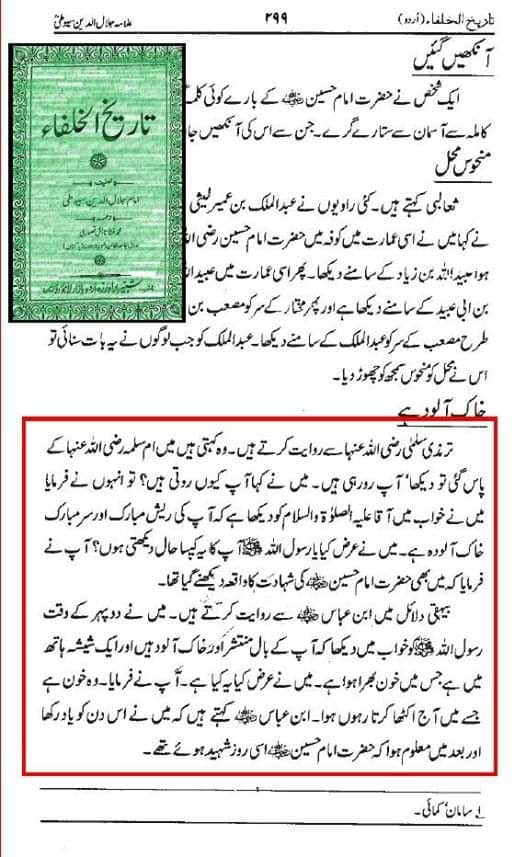 تاریخ الخلفاء (اُردو)
۲۹۹
علامہ جلال الدین سیوطیؒ
آنکھیں گئیں
ایک شخص نے حضرت امام حسین رضی اللہ عنہ کے بارے کوئی کلمہ
کاملہ سے آسمان سے ستارے گرے۔ جن سے اس کی آنکھیں جا
منحوس محل
ثعالبی کہتے ہیں۔ کئی راویوں نے عبدالملک بن عمیر لیثی
نے کہا میں نے اسی عمارت میں کوفہ میں حضرت امام حسین رضی اللہ
ہوا عبید اللہ بن زیاد کے سامنے دیکھا۔ پھر اسی عمارت میں عبید اللہ
بن ابی عبید کے سامنے دیکھا ہے اور پھر مختار کے سر کو مصعب بن
طرح مصعب کے سر کو عبدالملک کے سامنے دیکھا۔ عبدالملک کو جب لوگوں نے یہ بات سنائی تو
اس نے محل کو منحوس سمجھ کو چھوڑ دیا۔
خاک آلود ہے
ترمذی سلمٰی رضی اللہ عنہا سے روایت کرتے ہیں۔ وہ کہتی ہیں میں ام سلمہ رضی اللہ عنہا کے
پاس گئی تو دیکھا' آپ رو رہی ہیں۔ میں نے کہا آپ کیوں روتی ہیں؟ تو انہوں نے فرمایا
میں نے خواب میں آقا علیہ الصلوٰۃ والسلام کو دیکھا ہے کہ آپ کی ریش مبارک اور سر مبارک
خاک آلودہ ہے۔ میں نے عرض کیا یا رسول اللہ ﷺ آپ کا یہ کیسا حال دیکھتی ہوں؟ آپ نے
فرمایا کہ میں بھی حضرت امام حسین رضی اللہ عنہ کی شہادت کا واقعہ دیکھنے گیا تھا۔
بیہقی دلائل میں ابن عباس رضی اللہ عنہ سے روایت کرتے ہیں۔ میں نے دوپہر کے وقت
رسول اللہ ﷺ کو خواب میں دیکھا کہ آپ کے بال منتشر اور خاک آلود ہیں اور ایک شیشہ ہاتھ
میں ہے جس میں خون بھرا ہوا ہے۔ میں نے عرض کیا یہ کیا ہے۔ آپ نے فرمایا۔ وہ خون ہے
جسے میں آج اکٹھا کرتا رہوں ہوا۔ ابن عباس رضی اللہ عنہ کہتے ہیں کہ میں نے اس دن کو یاد رکھا
اور بعد میں معلوم ہوا کہ حضرت امام حسین رضی اللہ عنہ اسی روز شہید ہوئے تھے۔
۱؎ سامان' کمائی۔
تاریخ الخلفاء
تصنیف
امام جلال الدین سیوطی